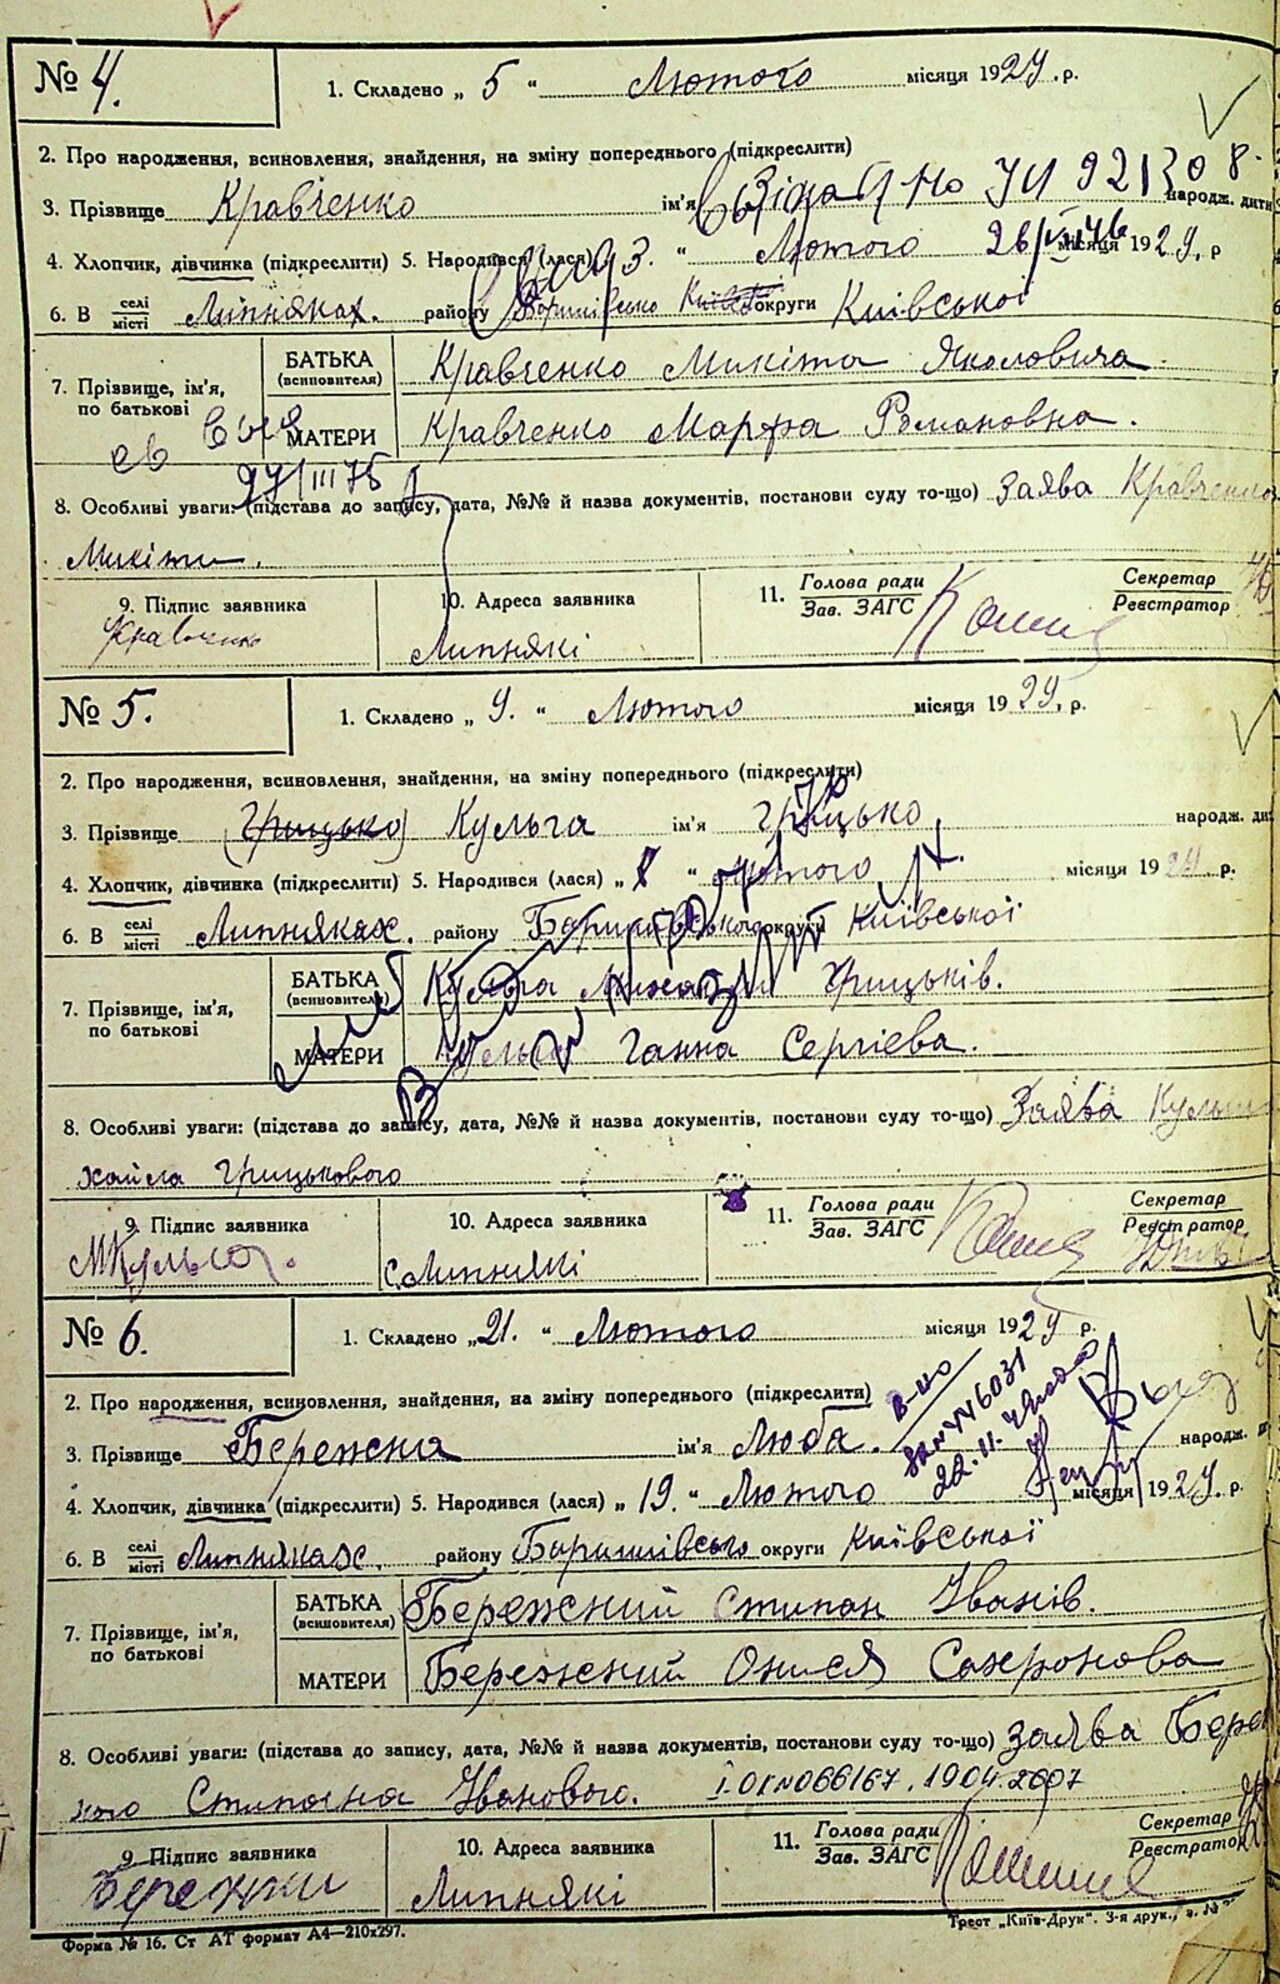 № 4.
1. Складено „ 5 “ Лютого місяця 1929. р.
2. Про народження, всиновлення, знайдення, на зміну попереднього (підкреслити)
3. Прізвище Кравченко ім'я народж. дити
4. Хлопчик, дівчинка (підкреслити) 5. Народився (лася) 3. “ Лютого місяця 1929. р
6. В селі місті Липняках. району Баришівсько округи Київської
7. Прізвище, ім'я, по батькові
БАТЬКА (всиновителя) Кравченко Микіта Яколовича
МАТЕРИ Кравченко Марфа Романовна.
27/III 75
8. Особливі уваги: (підстава до запису, дата, №№ й назва документів, постанови суду то-що) Заява Кравченко
Микіти.
9. Підпис заявника Кравченко
10. Адреса заявника Липнякі
11. Голова ради Зав. ЗАГС
Секретар Реєстратор
№ 5.
1. Складено „ 9. “ Лютого місяця 1929. р.
2. Про народження, всиновлення, знайдення, на зміну попереднього (підкреслити)
3. Прізвище (Грицько) Кульга ім'я Грицько народж. ди
4. Хлопчик, дівчинка (підкреслити) 5. Народився (лася) „ 8 “ лютого місяця 1929. р.
6. В селі місті Липняках. району Баришівського округи Київської
7. Прізвище, ім'я, по батькові
БАТЬКА (всиновителя) Кульга Михайло Грицьків.
МАТЕРИ Кульга Ганна Сергієва.
8. Особливі уваги: (підстава до запису, дата, №№ й назва документів, постанови суду то-що) Заява Кульги
хайла Грицькового
9. Підпис заявника МКульга.
10. Адреса заявника с. Липнякі
11. Голова ради Зав. ЗАГС
Секретар Реєстратор
№ 6.
1. Складено „ 21. “ Лютого місяця 1929 р.
2. Про народження, всиновлення, знайдення, на зміну попереднього (підкреслити)
3. Прізвище Бережна ім'я Люба. народж.
4. Хлопчик, дівчинка (підкреслити) 5. Народився (лася) „ 19. “ Лютого місяця 1929. р.
6. В селі місті Липняках. району Баришівсько округи Київської
7. Прізвище, ім'я, по батькові
БАТЬКА (всиновителя) Бережний Стипан Іванів.
МАТЕРИ Бережний Онися Сахронова
8. Особливі уваги: (підстава до запису, дата, №№ й назва документів, постанови суду то-що) Заява Бере
ного Стипана Іванового. І-ОК№066167, 19.04.2007
9. Підпис заявника Бережни
10. Адреса заявника Липнякі
11. Голова ради Зав. ЗАГС
Секретар Реєстратор
Форма № 16. Ст АТ формат А4—210х297.
Трест „Київ-Друк“. 3-я друк.,